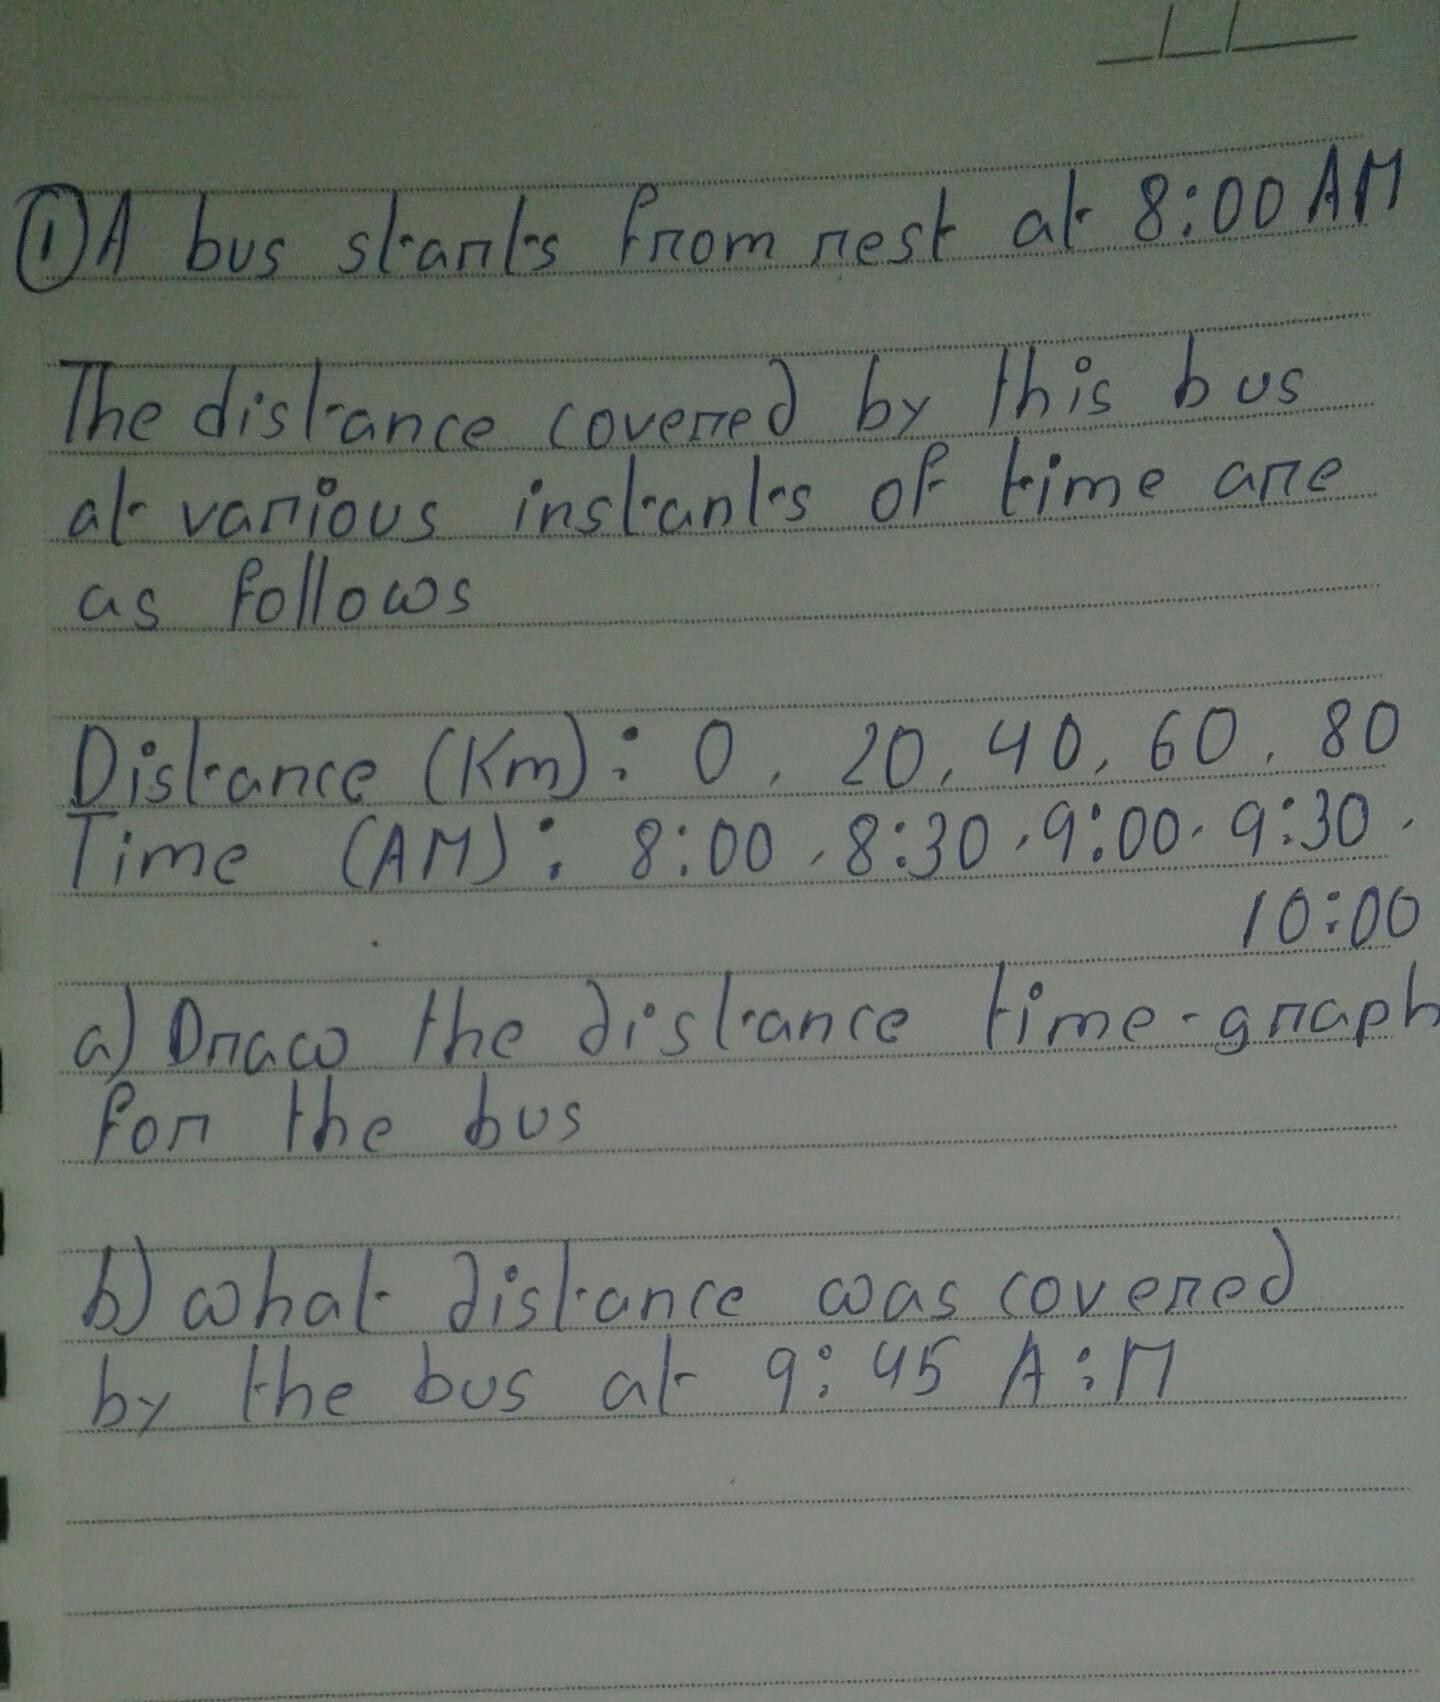 ① A bus starts from rest at 8:00 AM
The distance covered by this bus
at various instants of time are
as follows
Distance (Km): 0, 20, 40, 60, 80
Time (AM): 8:00, 8:30, 9:00, 9:30,
10:00
a) Draw the distance time-graph
for the bus
b) what distance was covered
by the bus at 9:45 A:M